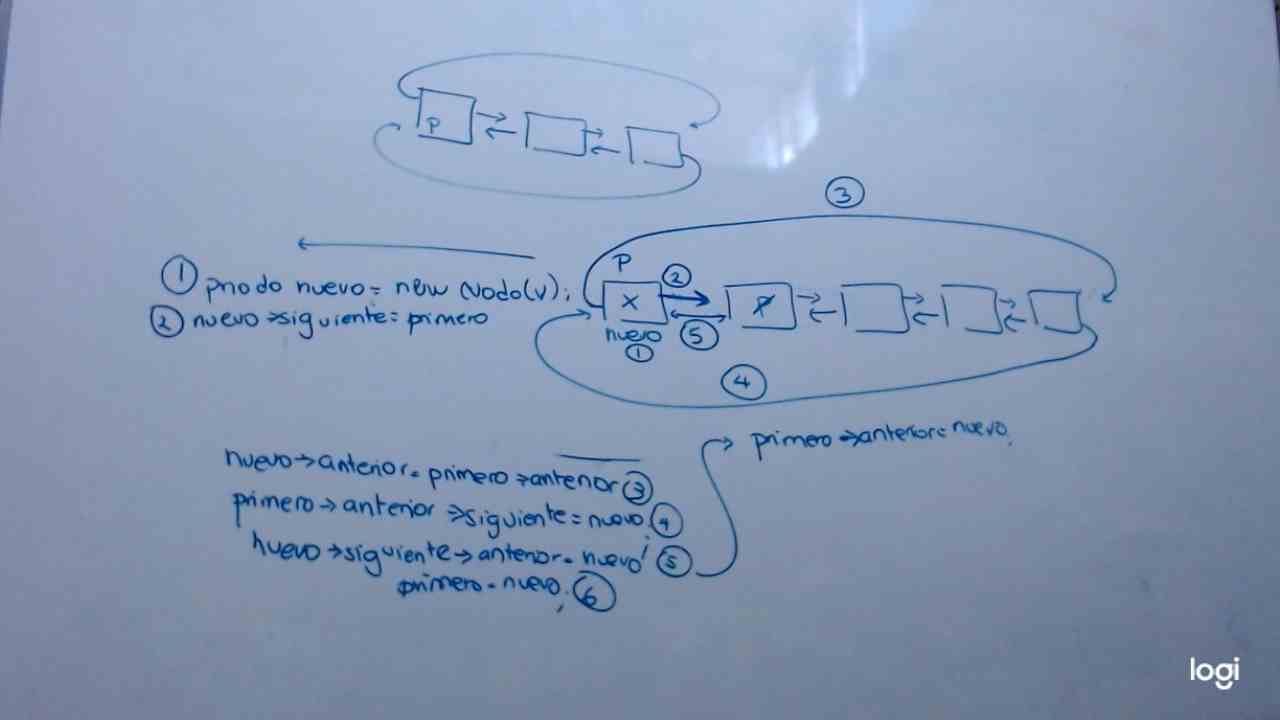 P
③
① pnodo nuevo = new Nodo(v);
② nuevo→siguiente = primero
P
②
X
P
nuevo
①
⑤
④
nuevo→anterior = primero→anterior ③
primero→anterior→siguiente = nuevo; ④
nuevo→siguiente→anterior = nuevo; ⑤
primero = nuevo; ⑥
primero→anterior = nuevo;
logi